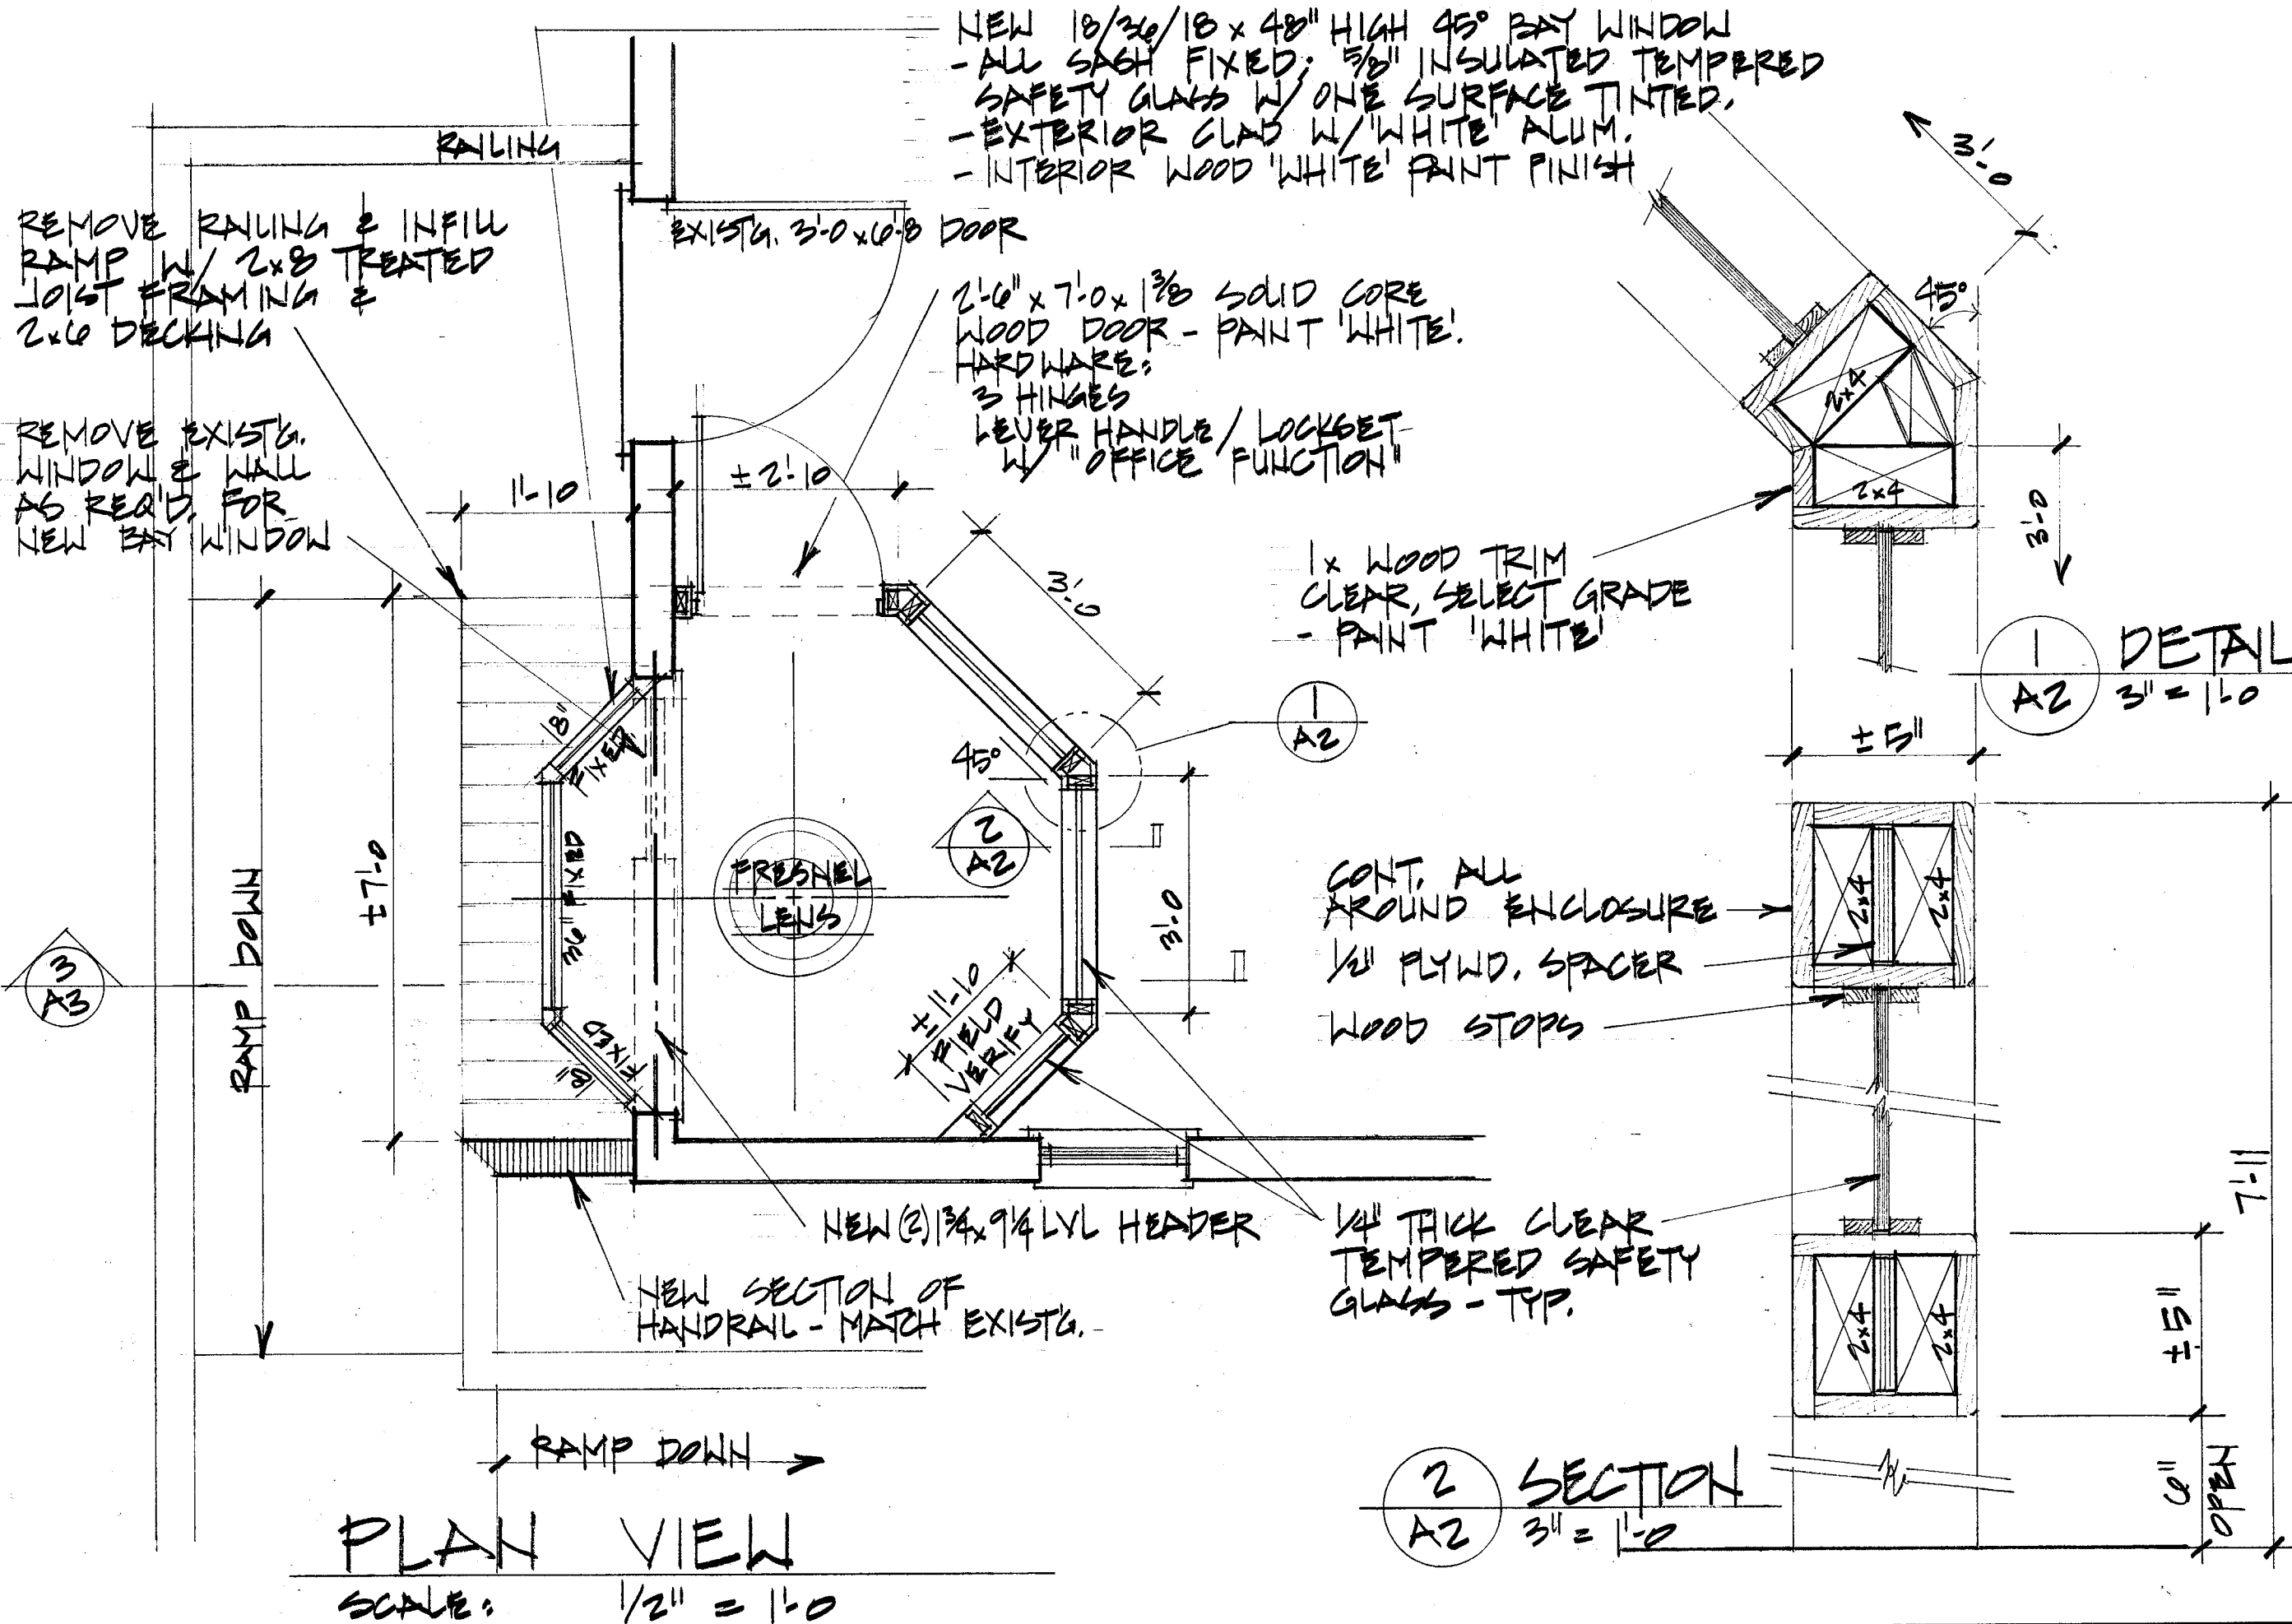 NEW 18/36/18 x 48" HIGH 45° BAY WINDOW
- ALL SASH FIXED; 5/8" INSULATED TEMPERED
SAFETY GLASS W/ ONE SURFACE TINTED.
- EXTERIOR CLAD W/ 'WHITE' ALUM.
- INTERIOR WOOD 'WHITE' PAINT FINISH
RAILING
REMOVE RAILING & INFILL
RAMP W/ 2x8 TREATED
JOIST FRAMING &
2x6 DECKING
EXIST'G. 3'-0 x 6'-8 DOOR
2'-6" x 7'-0 x 1 3/8 SOLID CORE
WOOD DOOR - PAINT 'WHITE'.
HARDWARE:
3 HINGES
LEVER HANDLE / LOCKSET
W/ "OFFICE FUNCTION"
REMOVE EXIST'G.
WINDOW & WALL
AS REQ'D. FOR
NEW BAY WINDOW
1'-10
±2'-10
3'-0
18"
FIXED
36" FIXED
FIXED
18"
±7'-0
RAMP DOWN
3
A3
FRESNEL
LENS
45°
2
A2
1
A2
3'-0
±1'-10
FIELD
VERIFY
NEW (2) 1 3/4 x 9 1/4 LVL HEADER
NEW SECTION OF
HANDRAIL - MATCH EXIST'G.
RAMP DOWN
PLAN VIEW
SCALE: 1/2" = 1'-0
3'-0
45°
2x4
2x4
3'-0
1x WOOD TRIM
CLEAR, SELECT GRADE
- PAINT 'WHITE'
1
A2
DETAIL
3" = 1'-0
±5"
CONT. ALL
AROUND ENCLOSURE
1/2" PLYWD. SPACER
WOOD STOPS
2x4
2x4
1/4" THICK CLEAR
TEMPERED SAFETY
GLASS - TYP.
2x4
2x4
7'-11
±5"
6"
OPEN
2
A2
SECTION
3" = 1'-0